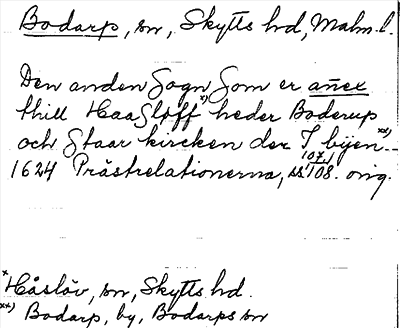 Bodarp, sn, Skytts hd, Malm. l.
Den anden Sogn Som er añex
thill Haasløff x) heder Boderup
och Staar kircken der I byen. xx)
1624 Prästrelationerna, ss 107, 108. orig.
x Håslöv, sn, Skytts hd.
xx) Bodarp, by, Bodarps sn